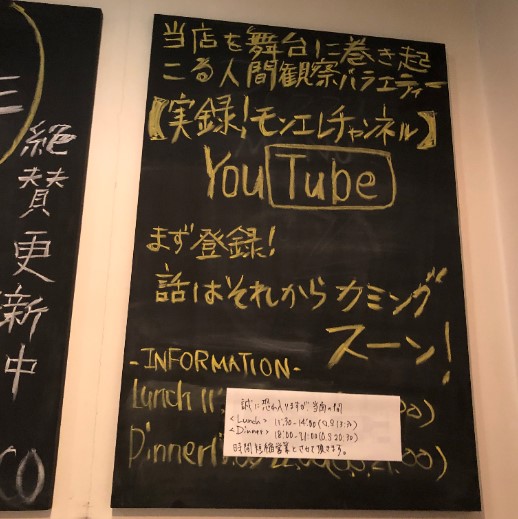 当店を舞台に巻き起
こる人間観察バラエティー
【実録!モンエレチャンネル】
YouTube
まず登録!
話はそれからカミング
スーン!
-INFORMATION-
Lunch 11
誠に恐れ入りますが当面の間
<Lunch> 11:30-14:00(L.O 13:30)
<Dinner> 18:00-21:00(L.O 20:30)
時間短縮営業とさせて頂きます。
Dinner
21:00)
絶賛更新中